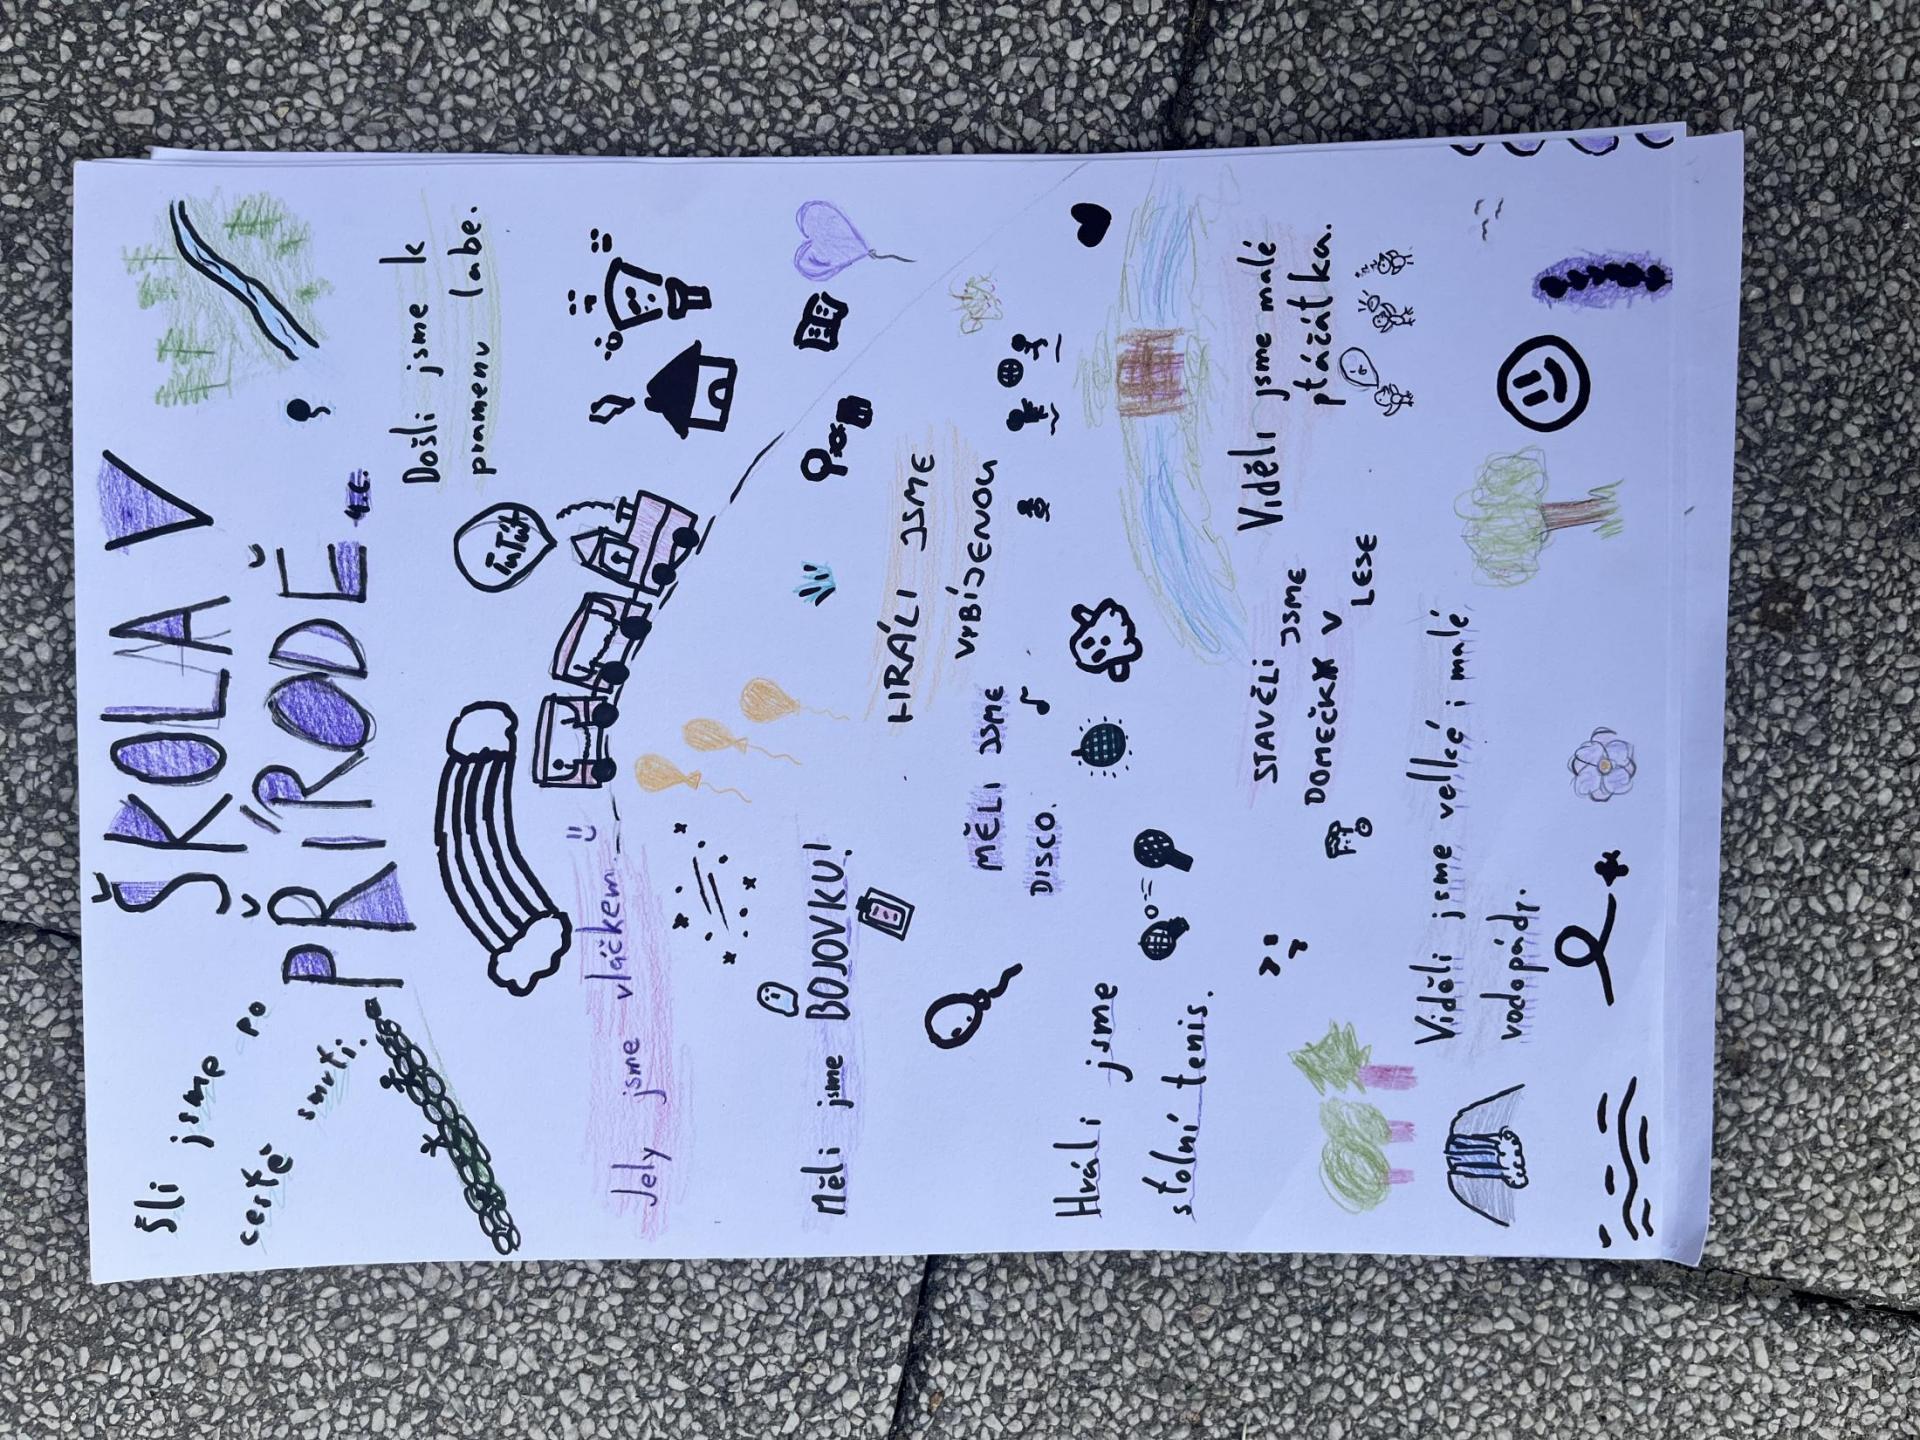 ŠKOLA V
PŘÍRODĚ 4.C.
Šli jsme po
cestě smrti.
Došli jsme k
pramenu labe.
TůTůt
Jely jsme vláčkem
Měli jsme BOJOVKU!
HRÁLI JSME
VYBÍJENOU
MĚLI JSME
DISCO.
Hráli jsme
stolní tenis.
Viděli jsme malé
ptáčátka.
STAVĚLI JSME
DOMEČKY V
LESE
Viděli jsme velké i malé
vodopády.